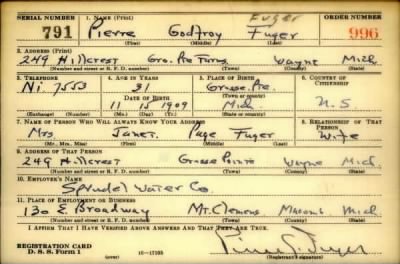 SERIAL NUMBER 1. NAME (Print) Fuger ORDER NUMBER
791 Pierre Godfroy Fuger 996
(First) (Middle) (Last)
2. ADDRESS (Print)
249 Hillcrest Gro. Pte Farms Wayne Mich
(Number and street or R. F. D. number) (Town) (County) (State)
3. TELEPHONE 4. AGE IN YEARS 5. PLACE OF BIRTH 6. COUNTRY OF CITIZENSHIP
Ni. 7553 31 Grosse Pte.
DATE OF BIRTH (Town or county)
11 15 1909 Mich U.S.
(Exchange) (Number) (Mo.) (Day) (Yr.) (State or country)
7. NAME OF PERSON WHO WILL ALWAYS KNOW YOUR ADDRESS 8. RELATIONSHIP OF THAT PERSON
Mrs. Janet Page Fuger Wife
(Mr., Mrs., Miss) (First) (Middle) (Last)
9. ADDRESS OF THAT PERSON
249 Hillcrest Grosse Pointe Wayne Mich.
(Number and street or R. F. D. number) (Town) (County) (State)
10. EMPLOYER'S NAME
Sprudel Water Co.
11. PLACE OF EMPLOYMENT OR BUSINESS
130 E. Broadway Mt. Clemens Mich
(Number and street or R. F. D. number) (Town) (County) (State)
I AFFIRM THAT I HAVE VERIFIED ABOVE ANSWERS AND THAT THEY ARE TRUE.
REGISTRATION CARD
D. S. S. Form 1 (over) 16—17105 (Registrant's signature)